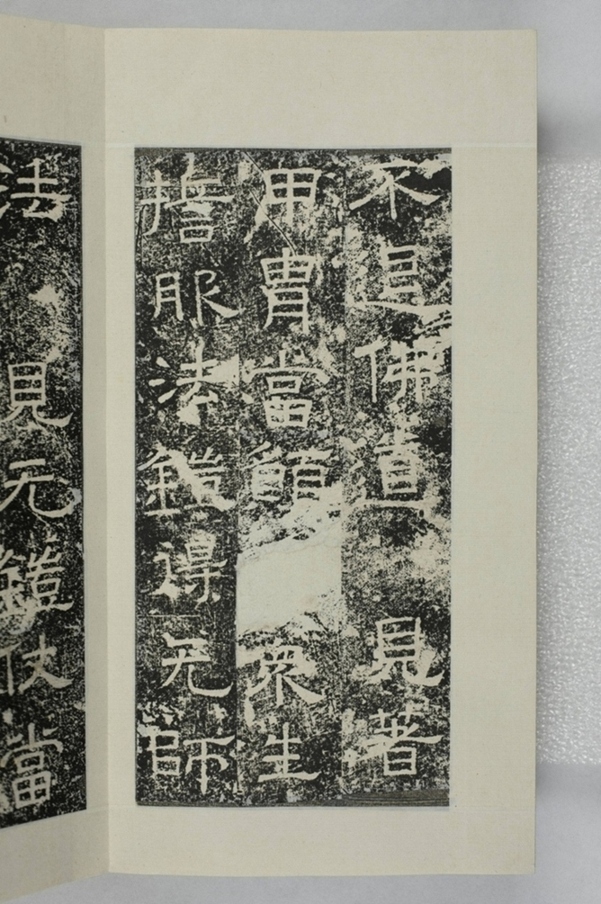 不退佛道 見著
甲冑當願 衆生
誓服法鎧得无師
法 見无鎧仗當